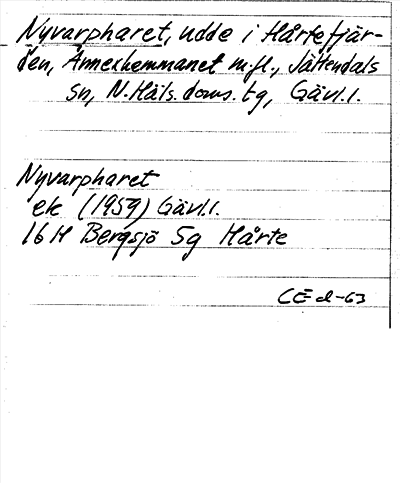 Nyvarpharet, udde i Hårtefjär-
den, Annexhemmanet m.fl., Jättendals
sn, N.Häls.doms.tg, Gävl.l.
Nyvarpharet
ek (1959) Gävl.l.
16H Bergsjö 5g Hårte
CE d-63